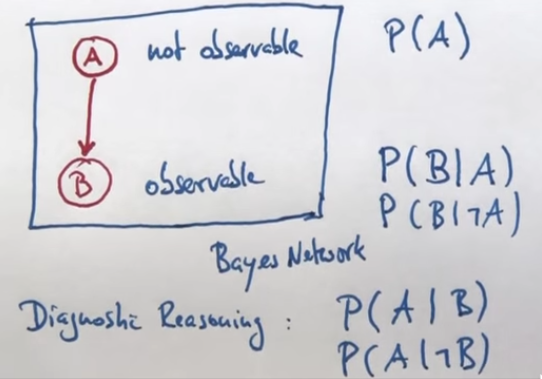 A not observable P(A)
B observable P(B|A)
P(B|¬A)
Bayes Network
Diagnostic Reasoning : P(A|B)
P(A|¬B)